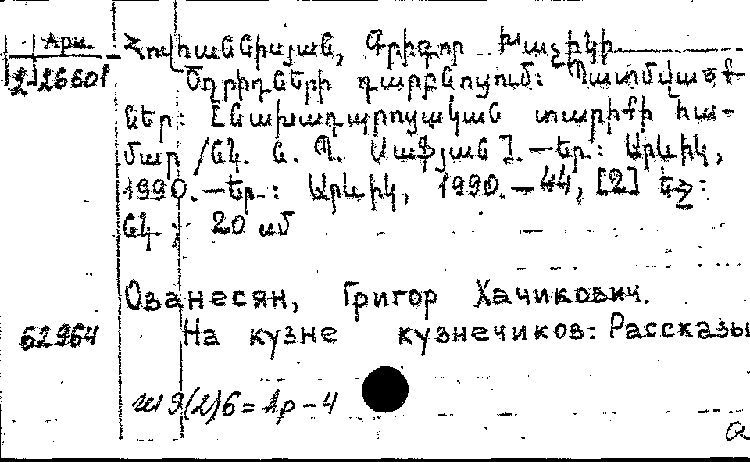 Арм.
2-26601
Հովհաննիսյան, Գրիգոր Խաչիկի
Ծղրիդների դարբնոցում: Պատմվածք-
ներ: Նախադպրոցական տարիքի հա-
մար /Նկ. Ն. Պ. Սաֆյան Հ. —Եր.: Արևիկ,
1990.—Եր.: Արևիկ, 1990.—44, [2] էջ:
նկ.; 20 սմ
Ованесян, Григор Хачикович.
62964 На кузне кузнечиков: Рассказы
Ш9(2)6=Ар-4